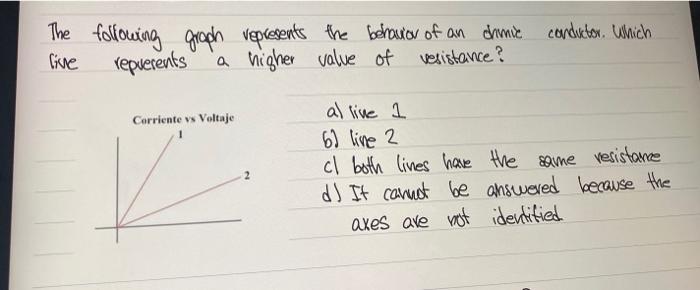 The following graph represents the behavior of an ohmic conductor. Which
line represents a higher value of resistance?
Corriente vs Voltaje
1
2
a) line 1
b) line 2
c) both lines have the same resistance
d) It cannot be answered because the
axes are not identified